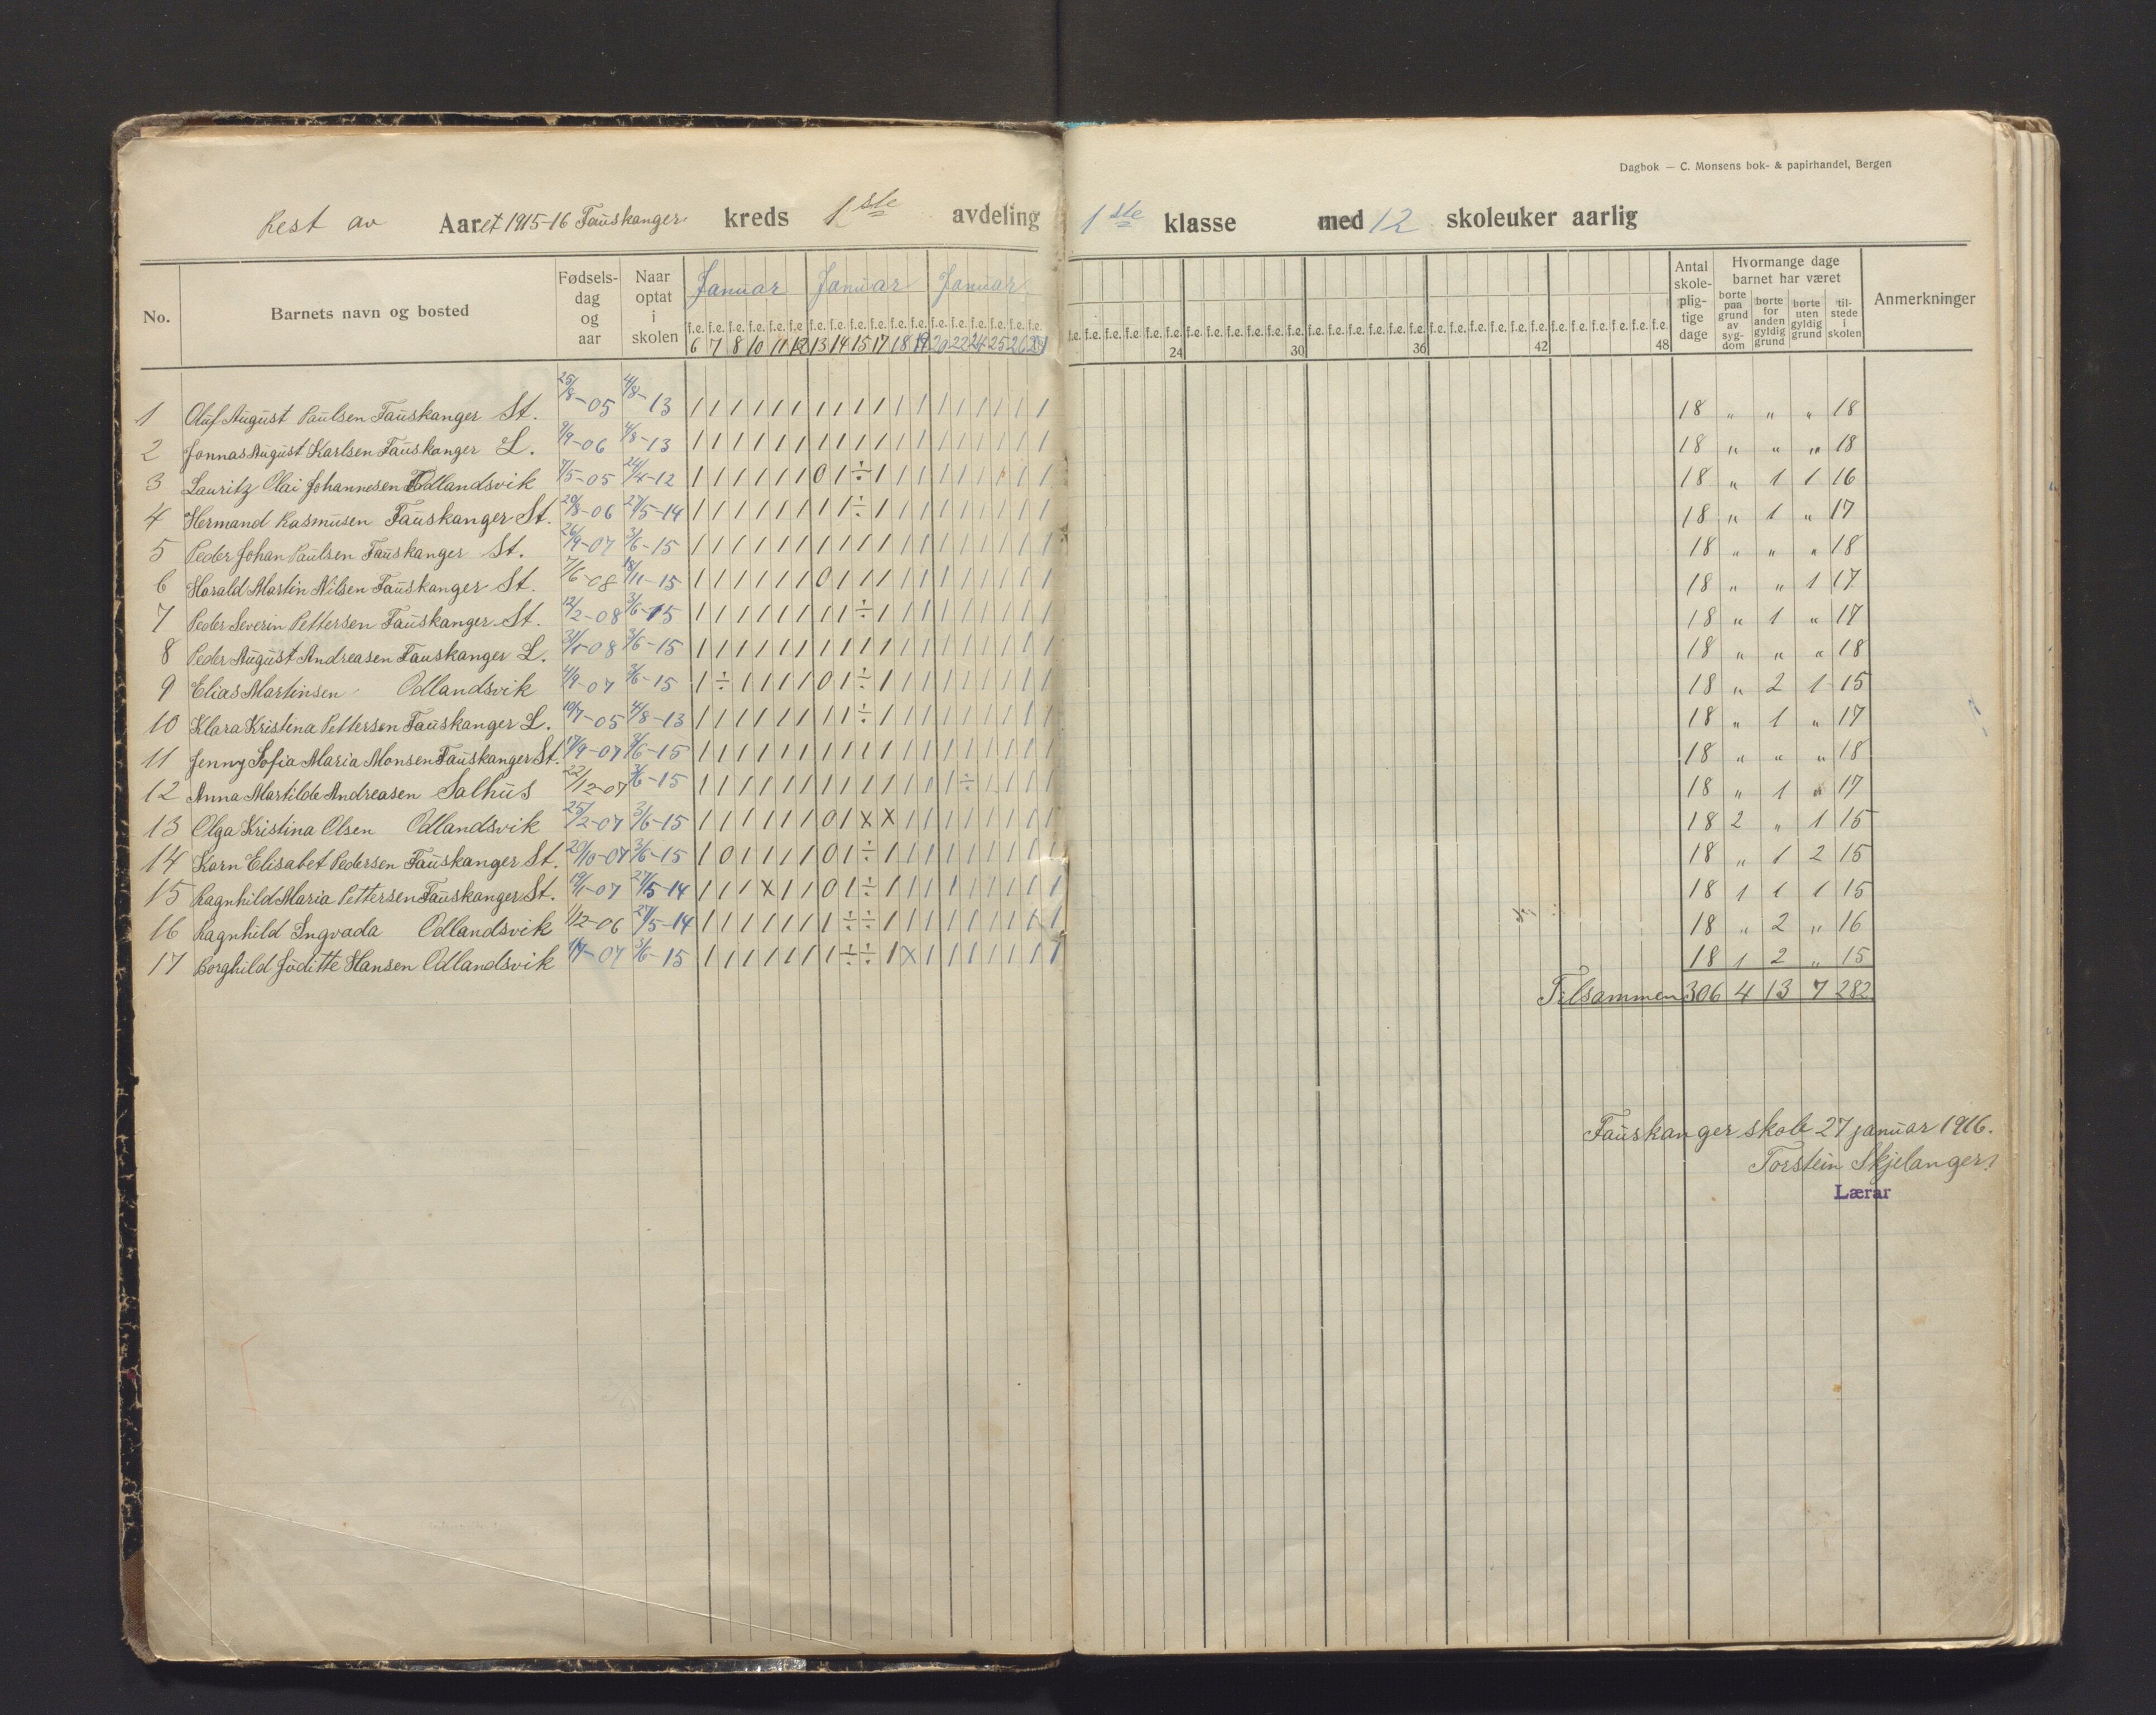 Dagbok — C. Monsens bok- & papirhandel, Bergen
Rest av Aaret 1915-16 Fauskanger kreds 1ste avdeling 1ste klasse med 12 skoleuker aarlig
No. Barnets navn og bosted Fødselsdag og aar Naar optat i skolen Januar Januar Januar Antal skolepligtige dage Hvormange dage barnet har været Anmerkninger
borte paa grund av sygdom borte for anden gyldig grund borte uten gyldig grund tilstede i skolen
f.e. f.e. f.e. f.e. f.e. f.e. f.e. f.e. f.e. f.e. f.e. f.e. f.e. f.e. f.e. f.e. f.e. f.e.
6 7 8 10 11 12 13 14 15 17 18 19 20 22 24 25 26 27 24 30 36 42 48
1 Oluf August Paulsen Fauskanger St. 25/8-05 4/8-13 1 1 1 1 1 1 1 1 1 1 1 1 1 1 1 1 1 1 18 " " " 18
2 Jonnas August Karlsen Fauskanger L. 9/9-06 4/8-13 1 1 1 1 1 1 1 1 1 1 1 1 1 1 1 1 1 1 18 " " " 18
3 Lauritz Olai Johannesen Odlandsvik 7/5-05 24/4-12 1 1 1 1 1 1 0 1 ÷ 1 1 1 1 1 1 1 1 1 18 " 1 1 16
4 Hermand Rasmusen Fauskanger St. 20/8-06 27/5-14 1 1 1 1 1 1 1 1 ÷ 1 1 1 1 1 1 1 1 1 18 " 1 " 17
5 Peder Johan Paulsen Fauskanger St. 26/9-07 3/6-15 1 1 1 1 1 1 1 1 1 1 1 1 1 1 1 1 1 1 18 " " " 18
6 Harald Martin Nilsen Fauskanger St. 7/6-08 18/11-15 1 1 1 1 1 1 0 1 1 1 1 1 1 1 1 1 1 1 18 " " 1 17
7 Peder Severin Pettersen Fauskanger St. 12/2-08 3/6-15 1 1 1 1 1 1 1 1 ÷ 1 1 1 1 1 1 1 1 1 18 " 1 " 17
8 Peder August Andreasen Fauskanger L. 31/1-08 3/6-15 1 1 1 1 1 1 1 1 1 1 1 1 1 1 1 1 1 1 18 " " " 18
9 Elias Martinsen Odlandsvik 4/9-07 3/6-15 1 ÷ 1 1 1 1 0 1 ÷ 1 1 1 1 1 1 1 1 1 18 " 2 1 15
10 Klara Kristina Pettersen Fauskanger L. 10/7-05 4/8-13 1 1 1 1 1 1 1 1 ÷ 1 1 1 1 1 1 1 1 1 18 " 1 " 17
11 Jenny Sofia Maria Monsen Fauskanger St. 17/9-07 3/6-15 1 1 1 1 1 1 1 1 1 1 1 1 1 1 1 1 1 1 18 " " " 18
12 Anna Martilde Andreasen Salhus 22/12-07 3/6-15 1 1 1 1 1 1 1 1 1 1 1 1 1 ÷ 1 1 1 1 18 " 1 " 17
13 Olga Kristina Olsen Odlandsvik 25/2-07 3/6-15 1 1 1 1 1 1 0 1 x x 1 1 1 1 1 1 1 1 18 2 " 1 15
14 Karn Elisabet Pedersen Fauskanger St. 20/10-07 3/6-15 1 0 1 1 1 1 0 1 ÷ 1 1 1 1 1 1 1 1 1 18 " 1 2 15
15 Ragnhild Maria Pettersen Fauskanger St. 19/1-07 27/5-14 1 1 1 x 1 1 0 1 ÷ 1 1 1 1 1 1 1 1 1 18 1 1 1 15
16 Ragnhild Ingvada Odlandsvik 1/12-06 27/5-14 1 1 1 1 1 1 1 ÷ ÷ 1 1 1 1 1 1 1 1 1 18 " 2 " 16
17 Borghild Juditte Hansen Odlandsvik 3/6-15 1 1 1 1 1 1 1 ÷ ÷ 1 x 1 1 1 1 1 1 1 18 1 2 " 15
Tilsammen 306 4 13 7 282
Fauskanger skole 27 januar 1916.
Torstein Skjelanger.
Lærar